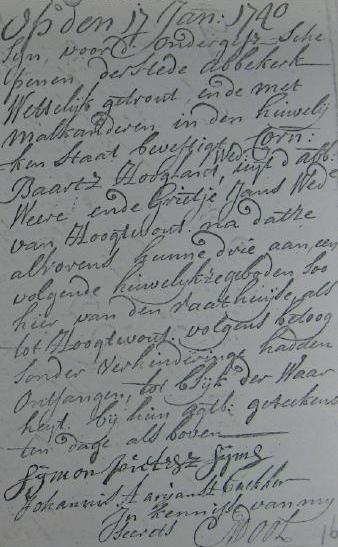 Op den 17 Jan: 1740
Sijn, voor d' Ondergesz: Sche
penen der stede Abbekerk
Wettelijk getrout, ende met
Malkanderen, in den huwelij
ken Staat bevestigt, Corn:
Baartz Hoogland, Wed: uijt d'abb:
Weere: ende Grietje Jans Wed:e
van Hoogtwout. na datze
alvorens hunne drie aan een
volgende huwelijkzegeboden soo
hier van den raathuijse, als
tot Hoogtwout. volgens betoog
sonder Verhinderinge hadden
Ontfangen, tot blijk der Waar
heyt. bij hun get: geteekent
ten dage als boven
Sijmon Pietersz Sijms
Johannis Aariansz backker
In kennisse van mij
Secrets